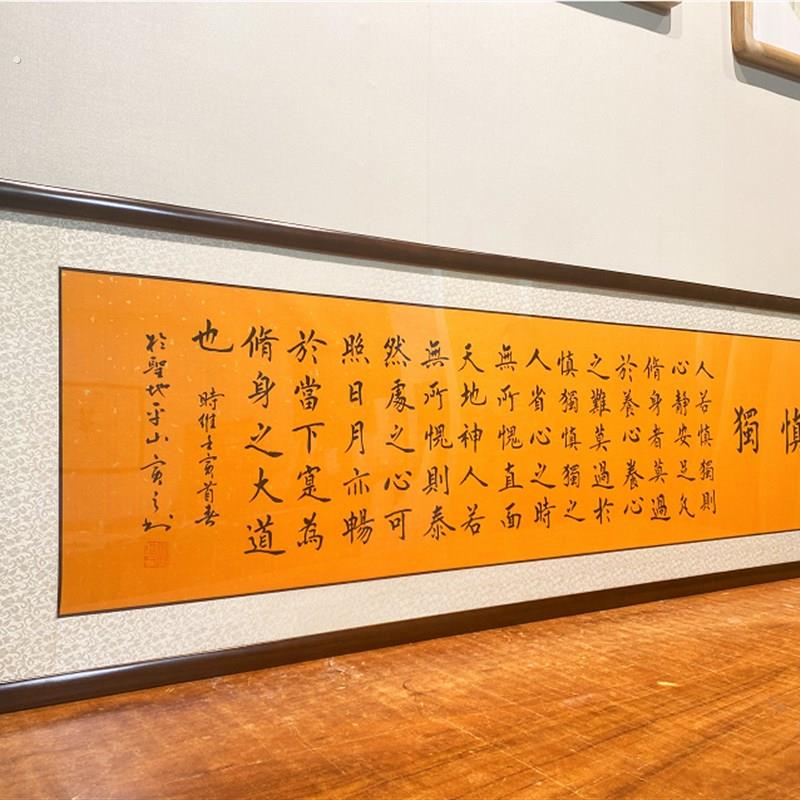 慎獨
人若慎獨則
心靜安足凡
脩身者莫過
於養心養心
之難莫過於
慎獨慎獨之
人省心之時
無所愧直面
天地神人若
無所愧則泰
然處之心可
照日月亦暢
於當下寔為
脩身之大道
也
時維壬寅首春
於聖地平山